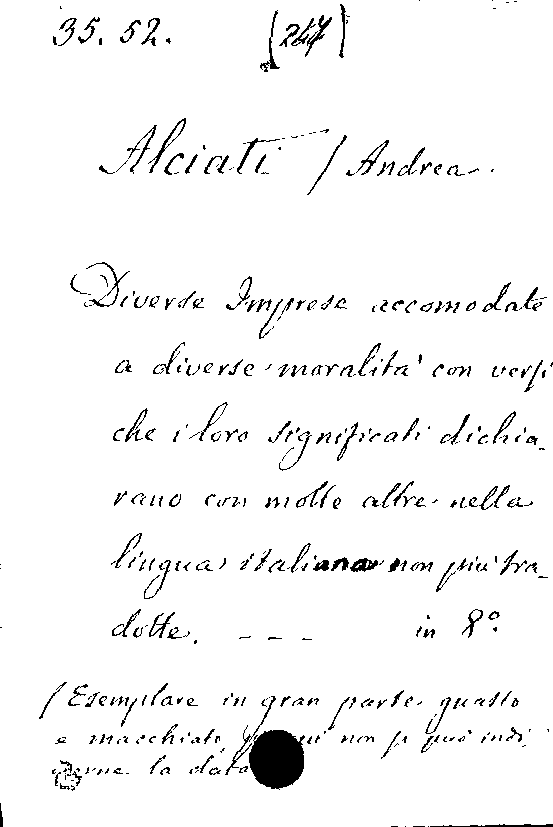 35. 52. (247)
Alciati / Andrea.
Diverse Imprese accomodate
a diverse moralità con versi
che i loro significati dichia-
rano con molte altre nella
lingua italiana non più tra-
dotte. - - - in 8º.
/ Esemplare in gran parte guasto
e macchiato, non si può indi,
carne la data